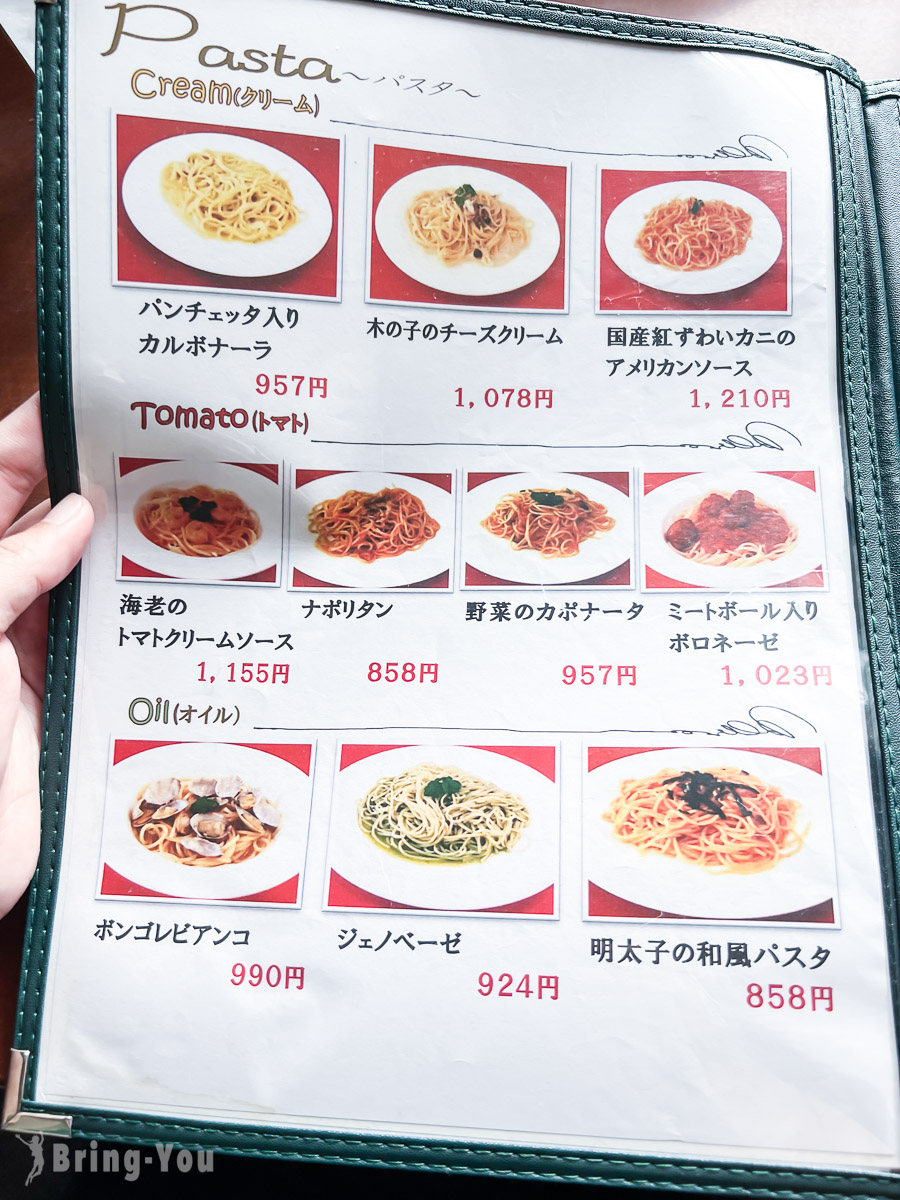 Pasta～パスタ～
Cream(クリーム)
パンチェッタ入り
カルボナーラ
957円
木の子のチーズクリーム
1,078円
国産紅ずわいカニの
アメリカンソース
1,210円
Tomato(トマト)
海老の
トマトクリームソース
1,155円
ナポリタン
858円
野菜のカポナータ
957円
ミートボール入り
ボロネーゼ
1,023円
Oil(オイル)
ボンゴレビアンコ
990円
ジェノベーゼ
924円
明太子の和風パスタ
858円
Bring-You